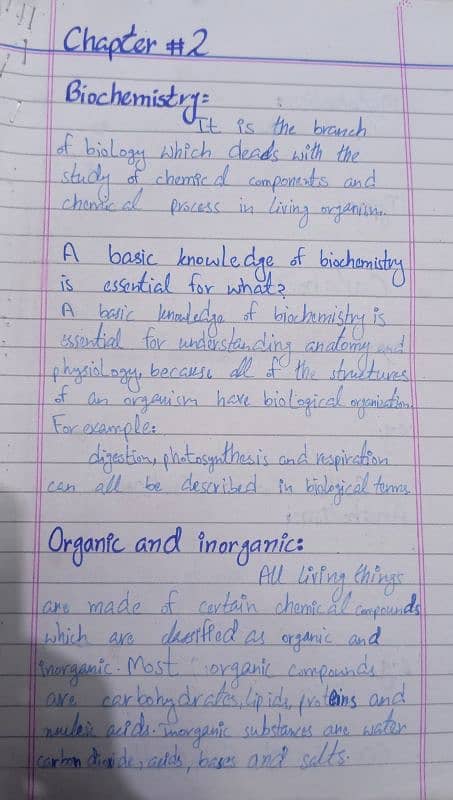 Chapter #2
Biochemistry:
It is the branch
of biology which deads with the
study of chemical components and
chemical process in living organism.
A basic knowledge of biochemistry
is essential for what?
A basic knowledge of biochemistry is
essential for understanding anatomy and
physiology, because all of the structures
of an organism have biological organization.
For example:
digestion, photosynthesis and respiration
can all be described in biological terms.
Organic and inorganic:
All living things
are made of certain chemical compounds
which are classified as organic and
inorganic. Most organic compounds
are carbohydrates, lipids, proteins and
nucleic acids. Inorganic substances are water
carbon dioxide, acids, bases and salts.